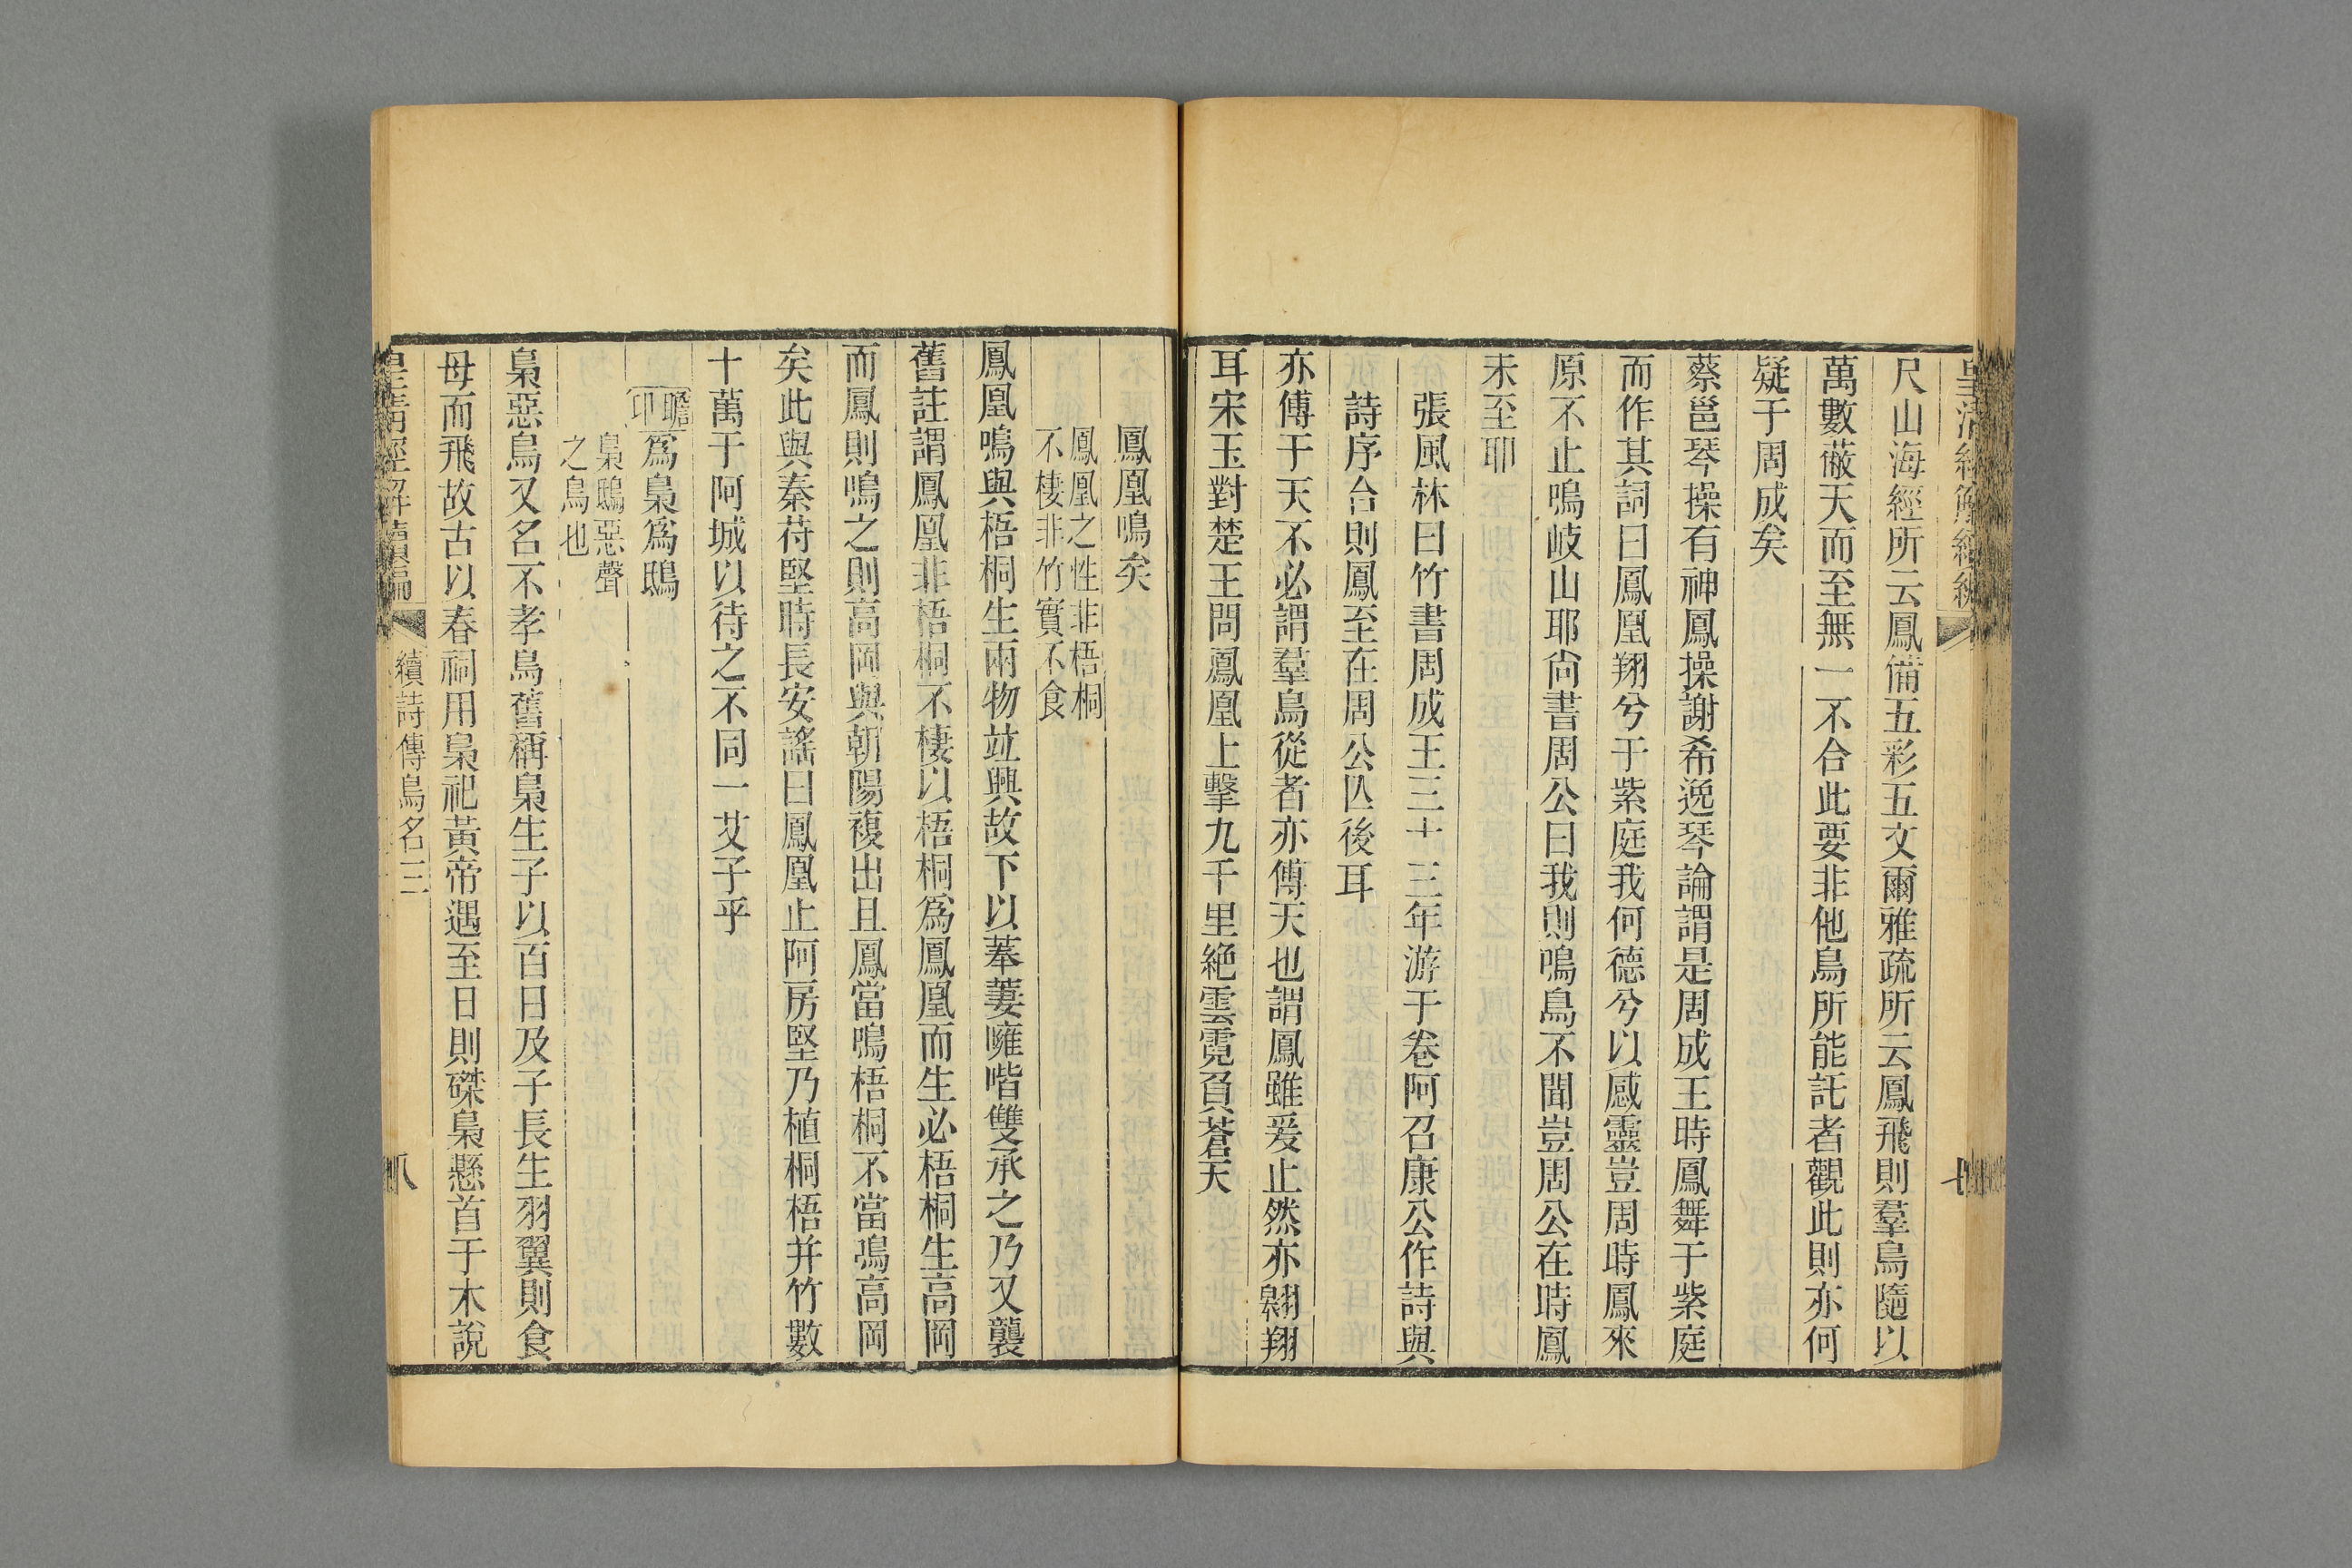 尺山海經所云鳳備五彩五文爾雅疏所云鳳飛則羣鳥隨以
萬數蔽天而至無一不合此要非他鳥所能託者觀此則亦何
疑于周成矣
蔡邕琴操有神鳳操謝希逸琴論謂是周成王時鳳舞于紫庭
而作其詞曰鳳凰翔兮于紫庭我何德兮以感靈豈周時鳳來
原不止鳴岐山耶尚書周公曰我則鳴鳥不聞豈周公在時鳳
未至耶
張風林曰竹書周成王三十三年游于卷阿召康公作詩與
詩序合則鳳至在周公歿後耳
亦傅于天不必謂羣鳥從者亦傅天也謂鳳雖爰止然亦翱翔
耳宋玉對楚王問鳳凰上擊九千里絶雲霓負蒼天
鳳凰鳴矣
鳳凰之性非梧桐
不棲非竹實不食
鳳凰鳴與梧桐生兩物竝興故下以菶萋雝喈雙承之乃又襲
舊註謂鳳凰非梧桐不棲以梧桐爲鳳凰而生必梧桐生高岡
而鳳則鳴之則高岡與朝陽複出且鳳當鳴梧桐不當鳴高岡
矣此與秦苻堅時長安謠曰鳳凰止阿房堅乃植桐梧并竹數
十萬于阿城以待之不同一艾子乎
瞻卬爲梟爲鴟
梟鴟惡聲
之鳥也
梟惡鳥又名不孝鳥舊稱梟生子以百日及子長生羽翼則食
母而飛故古以春祠用梟祀黃帝遇至日則磔梟懸首于木說
皇清經解續編
續詩傳鳥名三
八